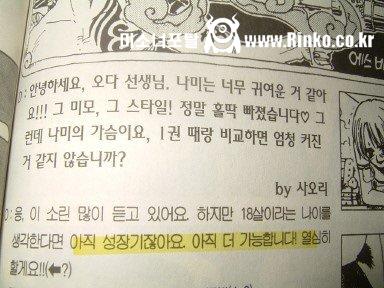 미소녀포털 www.Rinko.co.kr
D : 안녕하세요, 오다 선생님. 나미는 너무 귀여운 거 같아
요!!! 그 미모, 그 스타일! 정말 홀딱 빠졌습니다♡ 그
런데 나미의 가슴이요, 1권 때랑 비교하면 엄청 커진
거 같지 않습니까?
by 사오리
O : 응, 이 소린 많이 듣고 있어요. 하지만 18살이라는 나이를
생각한다면 아직 성장기잖아요. 아직 더 가능합니다! 열심히
할게요!!(⬅?)